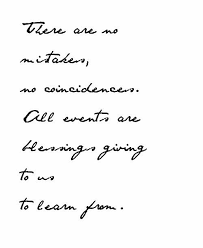 There are no
mistakes,
no coincidences.
All events are
blessings giving
to us
to learn from.